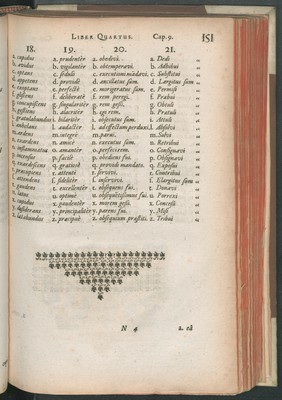 LIBER QUARTUS. Cap. 9. 151
18. 19. 20. 21.
a. cupidus a. prudentèr a. obedivi. a. Dedi
b. avidus b. vigilantèr b. obtemperavi. b. Adhibui
c. optans c. sedulò c. executioni mãdavi. c. Substitui
d. appetens d. providè d. ancillatus sum. d. Largitus sum
e. exoptans e. perfectè e. morigeratus sum. e. Permisi
f. gliscens f. deliberatè f. rem peregi. f. Praebui
g. concupiscens g. singularitèr g. rem gessi. g. Obtuli
h. gestiens h. alacritèr h. egi rem. h. Protuli
i. gratulabundus i. hilaritèr i. obsecutus sum. i. Attuli
l. anhelans l. audactèr l. ad effectum perduxi. l. Absolvi
m. ardens m. integrè m. parui. m. Solvi
n. exardens n. amicè n. executus sum. n. Retribui
o. inflammatus o. amantèr o. perfeci rem. o. Consignavi
p. incensus p. facilè p. obediens fui. p. Obsignavi
q. exardescens q. gratiosè q. providi mandato. q. Exposui
r. praecupiens r. attentè r. servivi. r. Contribui
s. attendens s. fidelitèr s. inservivi. s. Elargitus sum
t. gaudens t. excellentèr t. obsequens fui. t. Donavi
u. latus u. optimè u. obsequutissimus fui. u. Porrexi
x. cupidus x. gaudentèr x. morem gessi. x. Concessi
y. desiderans y. principalitèr y. parens fui. y. Misi
z. laetabundus z. praecipuè z. obsequium praestiti. z. Tribui
N 4 a. ea